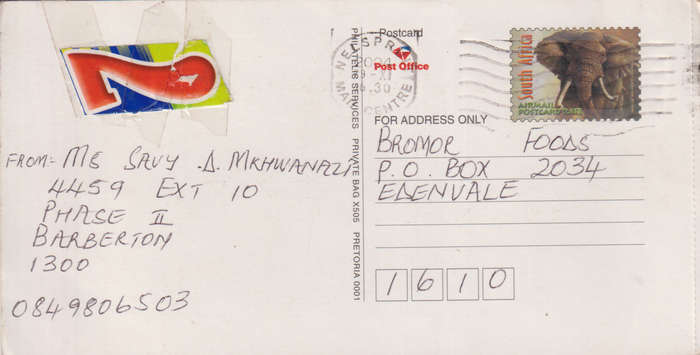 FROM:- MS SAVY .D. MKHWANAZI
4459 EXT 10
PHASE II
BARBERTON
1300
0849806503
PHILATELIC SERVICES PRIVATE BAG X505 PRETORIA 0001
Postcard
Post Office
NELSPR
2004
-XI-
.30
MAIL CENTRE
South Africa
AIRMAIL
POSTCARD
FOR ADDRESS ONLY
BROMOR FOODS
P.O. BOX 2034
EDENVALE
1610